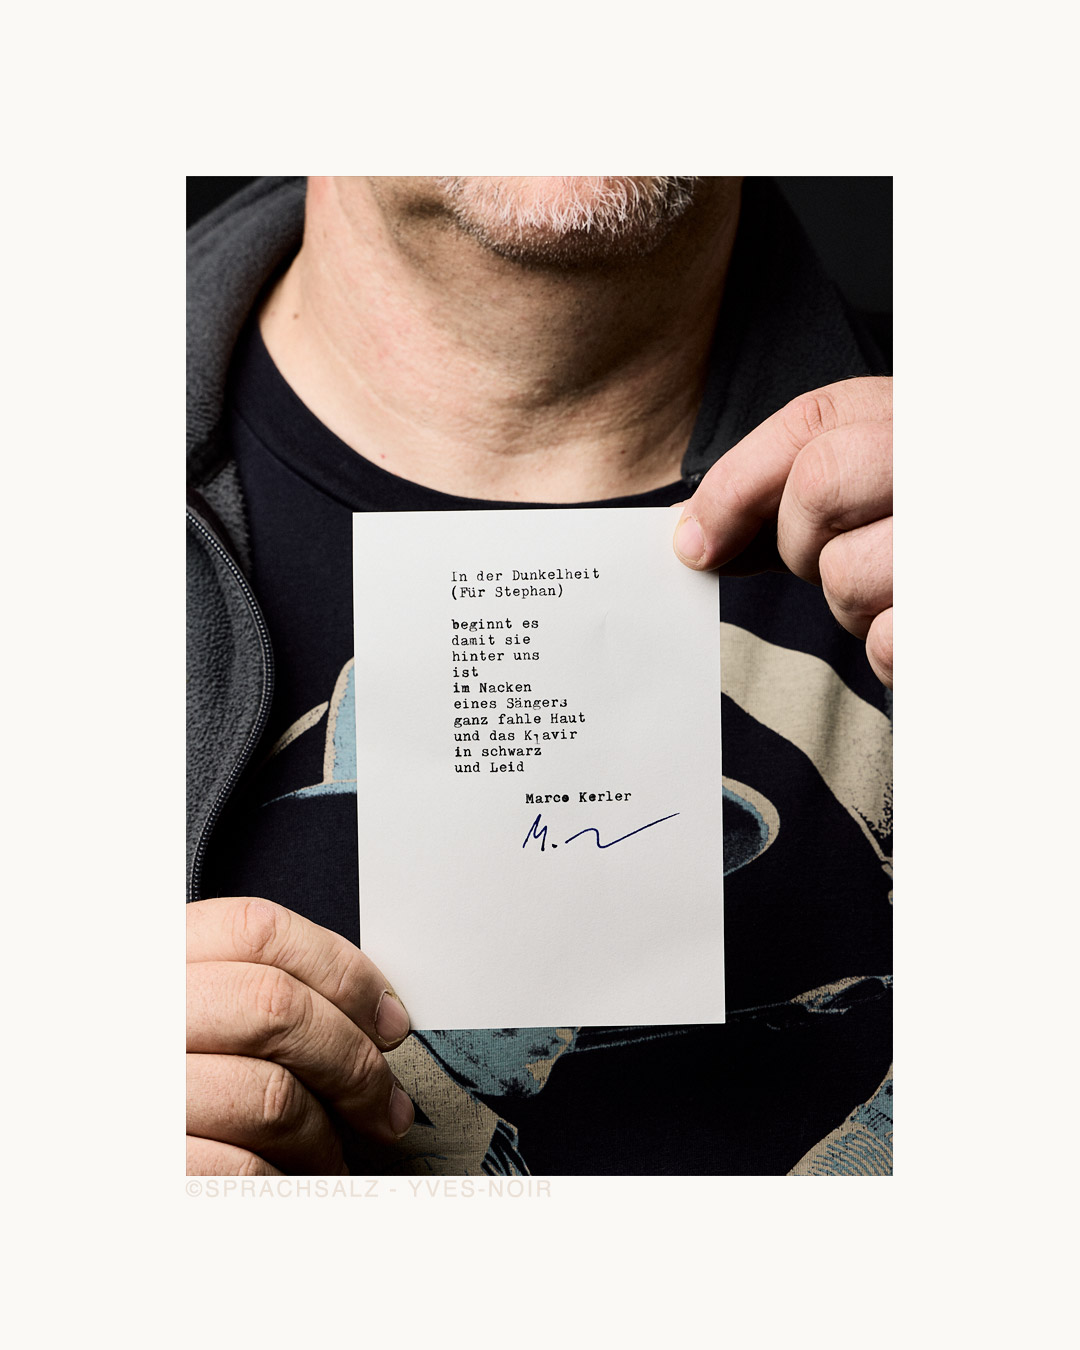 In der Dunkelheit
(Für Stephan)
beginnt es
damit sie
hinter uns
ist
im Nacken
eines Sängers
ganz fahle Haut
und das Klavir
in schwarz
und Leid
Marco Kerler
©SPRACHSALZ - YVES-NOIR